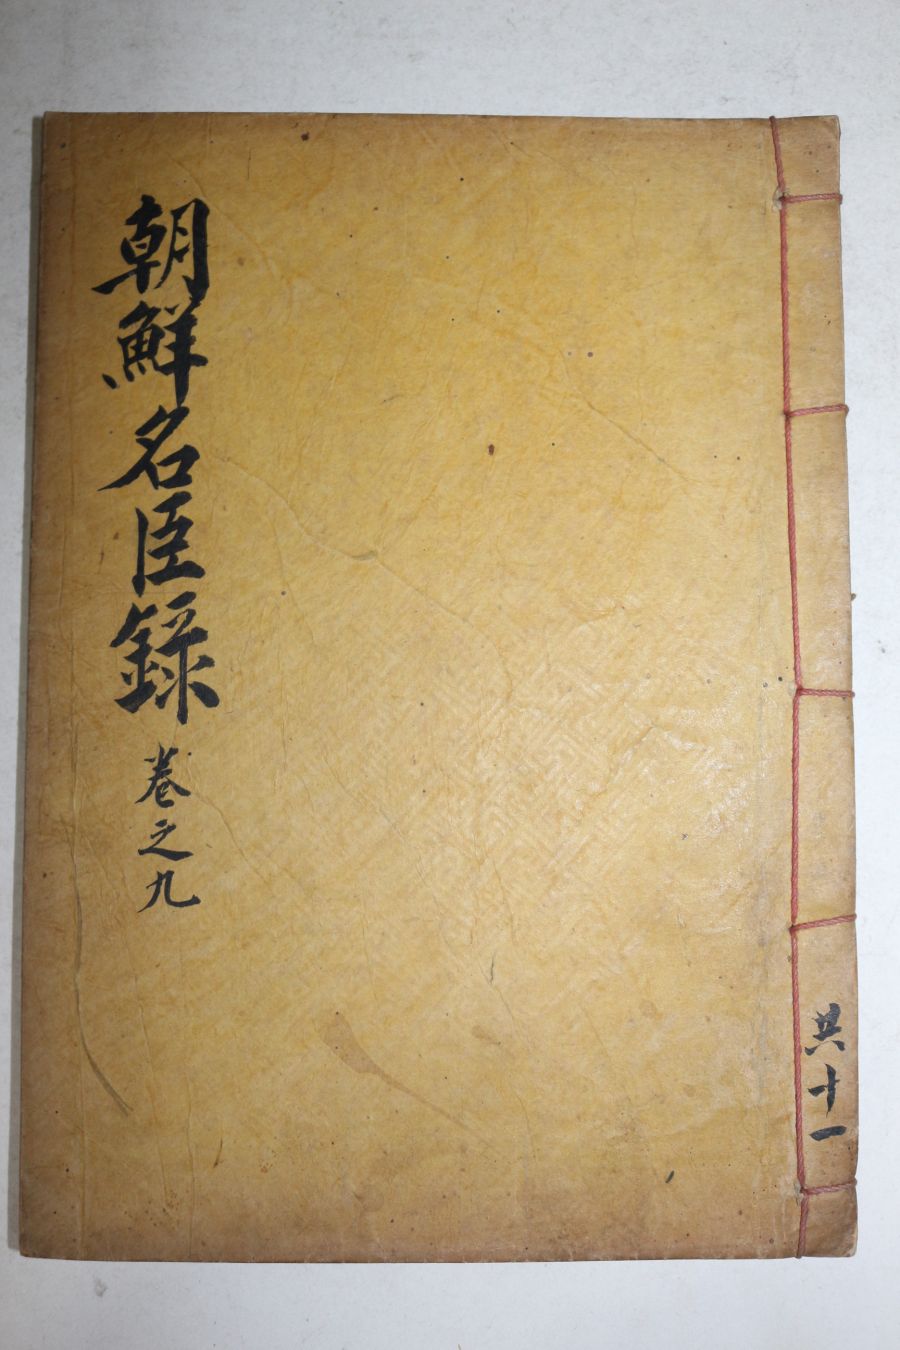 朝鮮名臣錄 卷之九
共十一